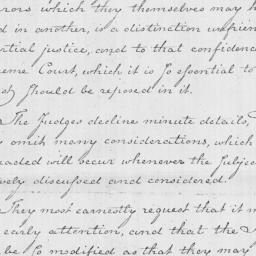 rors which they themselves may h
d in another, is a distinction unfrien
ntial justice, and to that confidenc
eme Court, which it is so essential to
d should be reposed in it.
The Judges decline minute details,
omit many considerations, which
uaded will occur whenever the subjec
vely discussed and considered.
They most earnestly request that it m
early attention, and that the
be so modified as that they may